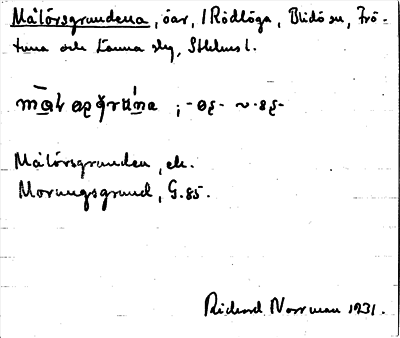 Målörsgrundena, öar, / Rödlöga, Blidö sn, Frö-
tuna och Länna slg, Sthlms l.
Målörsgrunden, ek.
Morungsgrund, G. 85.
Richard Norrman 1931.